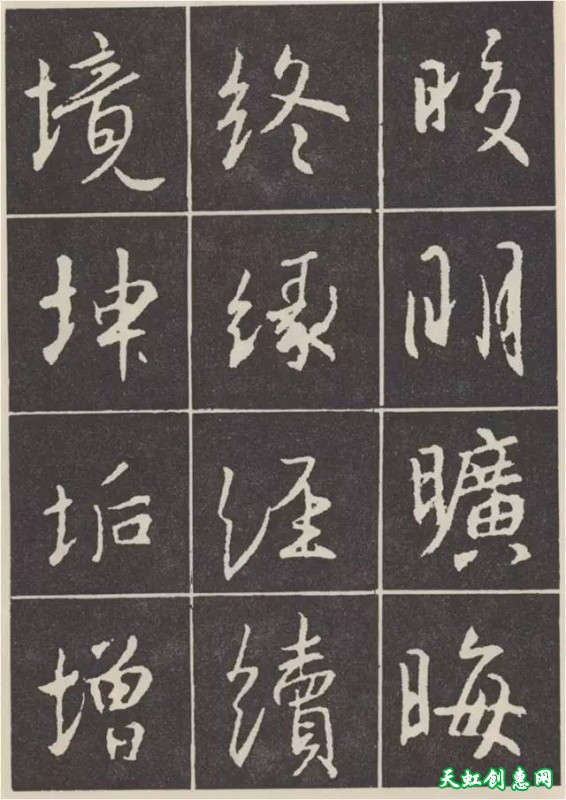 晈明曠晦
終緣經續
境坤垢增
天虹创惠网